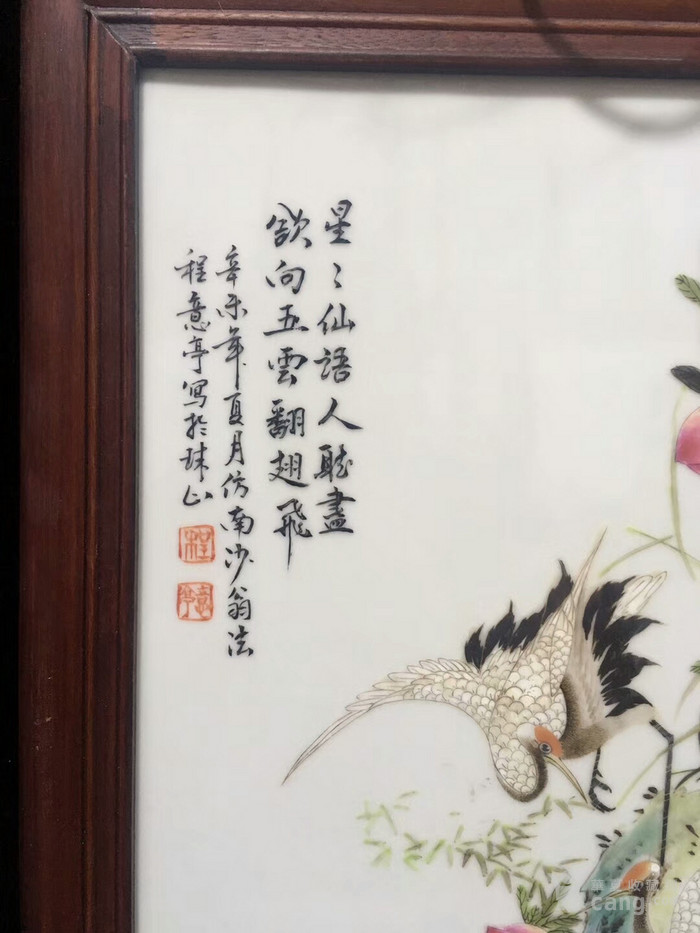 星々仙語人聽盡
欲向五雲翻翅飛
辛未年夏月仿南沙翁法
程意亭寫於珠山
程
意亭
華夏收藏
cang